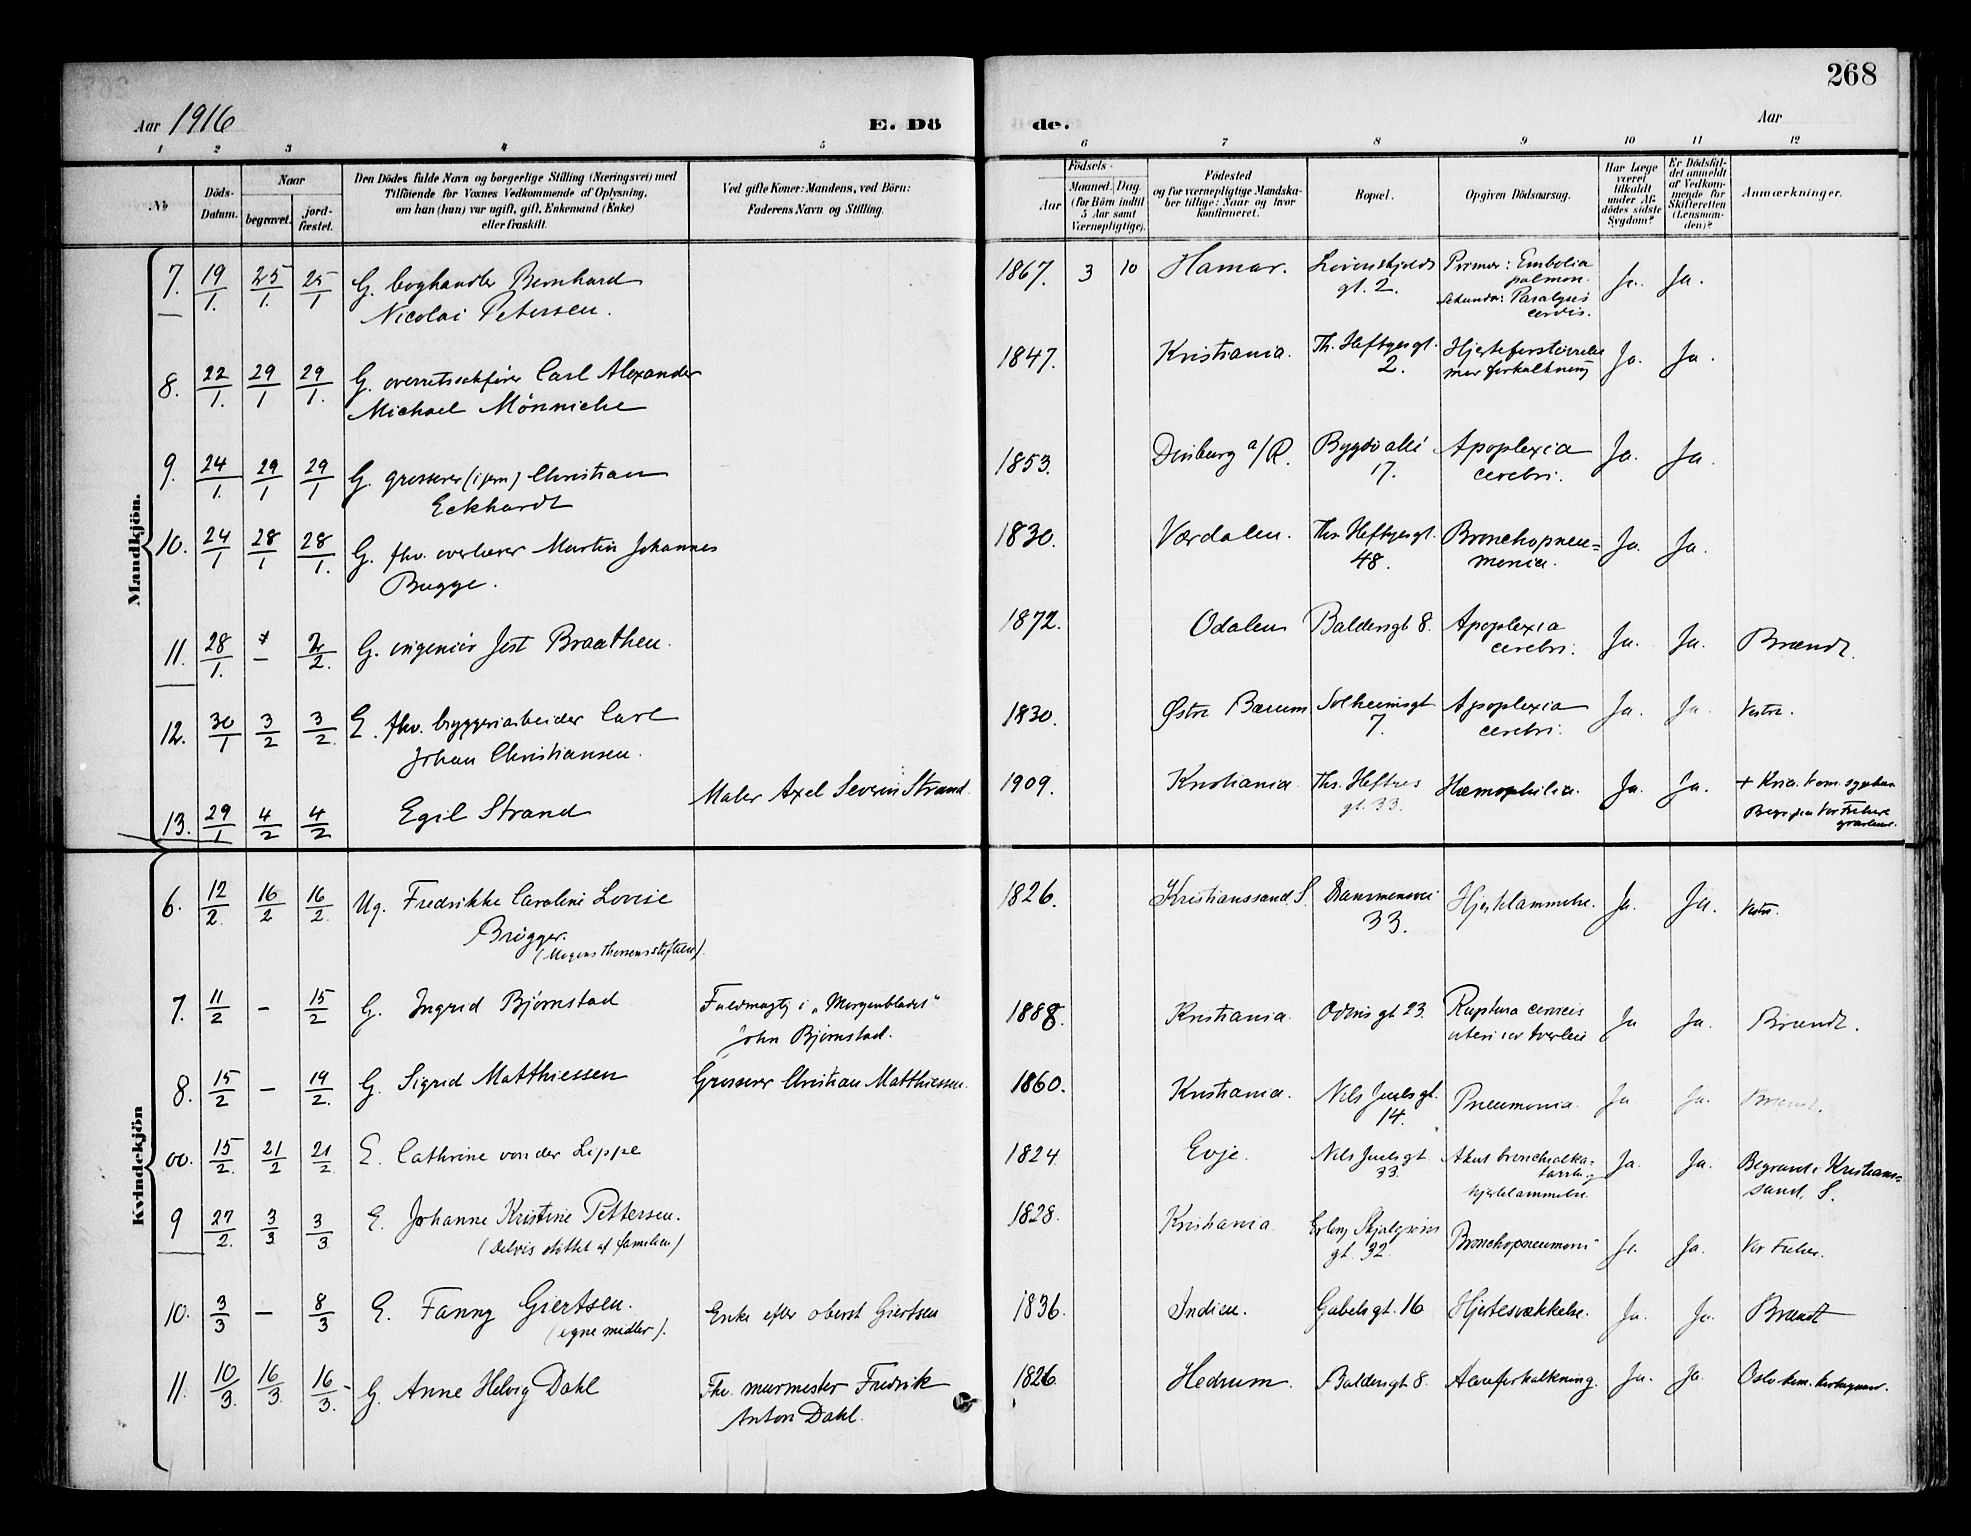 268
Aar 1916 E. Dö de. Aar
1 2 3 4 5 6 7 8 9 10 11 12
No
Döds-Datum.
Naar
begravet.
jordfæstet.
Den Dödes fulde Navn og borgerlige Stilling (Næringsvei) med
Tilföiende for Voxnes Vedkommende af Oplysning,
om han (hun) var ugift, gift, Enkemand (Enke)
eller fraskilt.
Ved gifte Koner: Mandens, ved Börn:
Faderens Navn og Stilling.
Födsels-
Aar
Maaned. Dag.
(for Börn indtil
5 Aar samt
Værnepligtige).
Födested
og for værnepligtige Mandska-
ber tillige: Naar og hvor
konfirmeret.
Bopæl.
Opgiven Dödsaarsag.
Har Læge
været
tilkaldt
under Af-
dödes sidste
Sygdom?
Er Dödsfal-
det anmeldt
af Vedkom-
mende for
Skifteretten
(Lensman-
den)?
Anmærkninger.
Mandkjön.
7. 19/1. 25/1. 25/1 G. boghandler Bernhard 1867. 3 10 Hamar. Løvenskjolds Primær: Embolia Ja. Ja.
Nicolai Petersen. gt. 2. pulmon.
sekundær: Paralysis
cordis.
8. 22/1. 29/1 29/1. G. overretssakfører Carl Alexander 1847. Kristiania. Th. Heftyesgt. Hjerteforstørrelse Ja. Ja.
Michael Mönniche 2. forkalkning
9. 24/1. 29/1 29/1 G. grosserer (i jern) Christian 1853. a/R. Bygdø allé Apoplexia Ja. Ja.
Eckhardt 17. cerebri.
10. 24/1 28/1 28/1. G. fhv. overlærer Martin Johannes 1830. Værdalen. Ths. Heftyesgt. Bronchopneu= Ja. Ja.
Bugge. 48. monia.
11. 28/1. – 2/2. G. ingeniør Braathen. 1872. Odalen Baldersgt 8. Apoplexia Ja. Ja. Brændt.
cerebri.
12. 30/1 3/2 3/2. E. fhv. bryggeriarbeider Carl 1830. Østre Bærum Solheimsgt Apoplexia Ja. Ja. Vestre.
Johan Christiansen. 7. cerebri.
13. 29/1 4/2 4/2 Egil Strand Maler Axel Severin Strand. 1909. Kristiania. Ths. Heftyes Hæmophilia. Ja. Ja. + Kria. kom. sygehus
gt. 33. Vor Frelsers
gravlund.
Kvindekjön
6. 12/2. 16/2 16/2. Ug. Fredrikke Caroline Lovise 1826. Kristianssand. S. Drammensvei Hjertelammelse. Ja. Ja. Vestre.
Brøgger. 33.
(Mogens Thorsens stiftelse).
7. 11/2 – 15/2 G. Ingrid Bjørnstad Fuldmægtig i „Morgenbladet“ 1888. Kristiania. Odins gt 23. Ruptura cervicis Ja Ja. Brændt.
John Bjørnstad. uteri
8. 15/2 – 19/2. G. Sigrid Matthiessen Grosserer Christian Matthiessen. 1860. Kristiania. Nils Juels gt. Pneumonia. Ja Ja. Brændt.
14.
00. 15/2. 21/2 21/2 E. Cathrine von der Lippe 1824. Evje. Nils Juelsgt. Akut bronchialka- Ja. Ja. Begravet i Kristians=
33. tarrh og sand. S.
hjertelammelse.
9 27/2. 3/3 3/3 E. Johanne Kristine Pettersen. 1828. Kristiania. Erling Skjalgsøns Bronchopneumoni Ja. Ja. Vor Frelser.
(Delvis støttet af familien) gt. 32.
10. 3/3 – 8/3 E. Fanny Giertsen. Enke efter oberst Giertsen 1836. Indien. Gabelsgt. 16 Hjertesvækkelse. Ja. Ja. Brændt
(egne midler).
11. 10/3. 16/3. 16/3. G. Anne Helvig Dahl Fhv. murmester Fredrik 1826. Hedrum. Baldersgt 8. Aareforkalkning. Ja. Ja. Oslo
Anton Dahl.